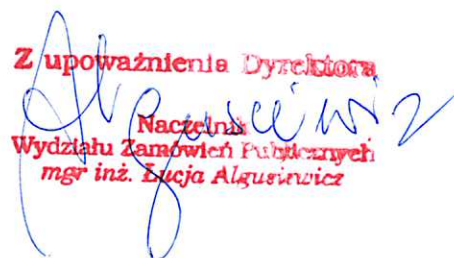 Z upoważnienia Dyrektora
Naczelnik
Wydziału Zamówień Publicznych
mgr inż. Łucja Algusiewicz
Algusiewicz